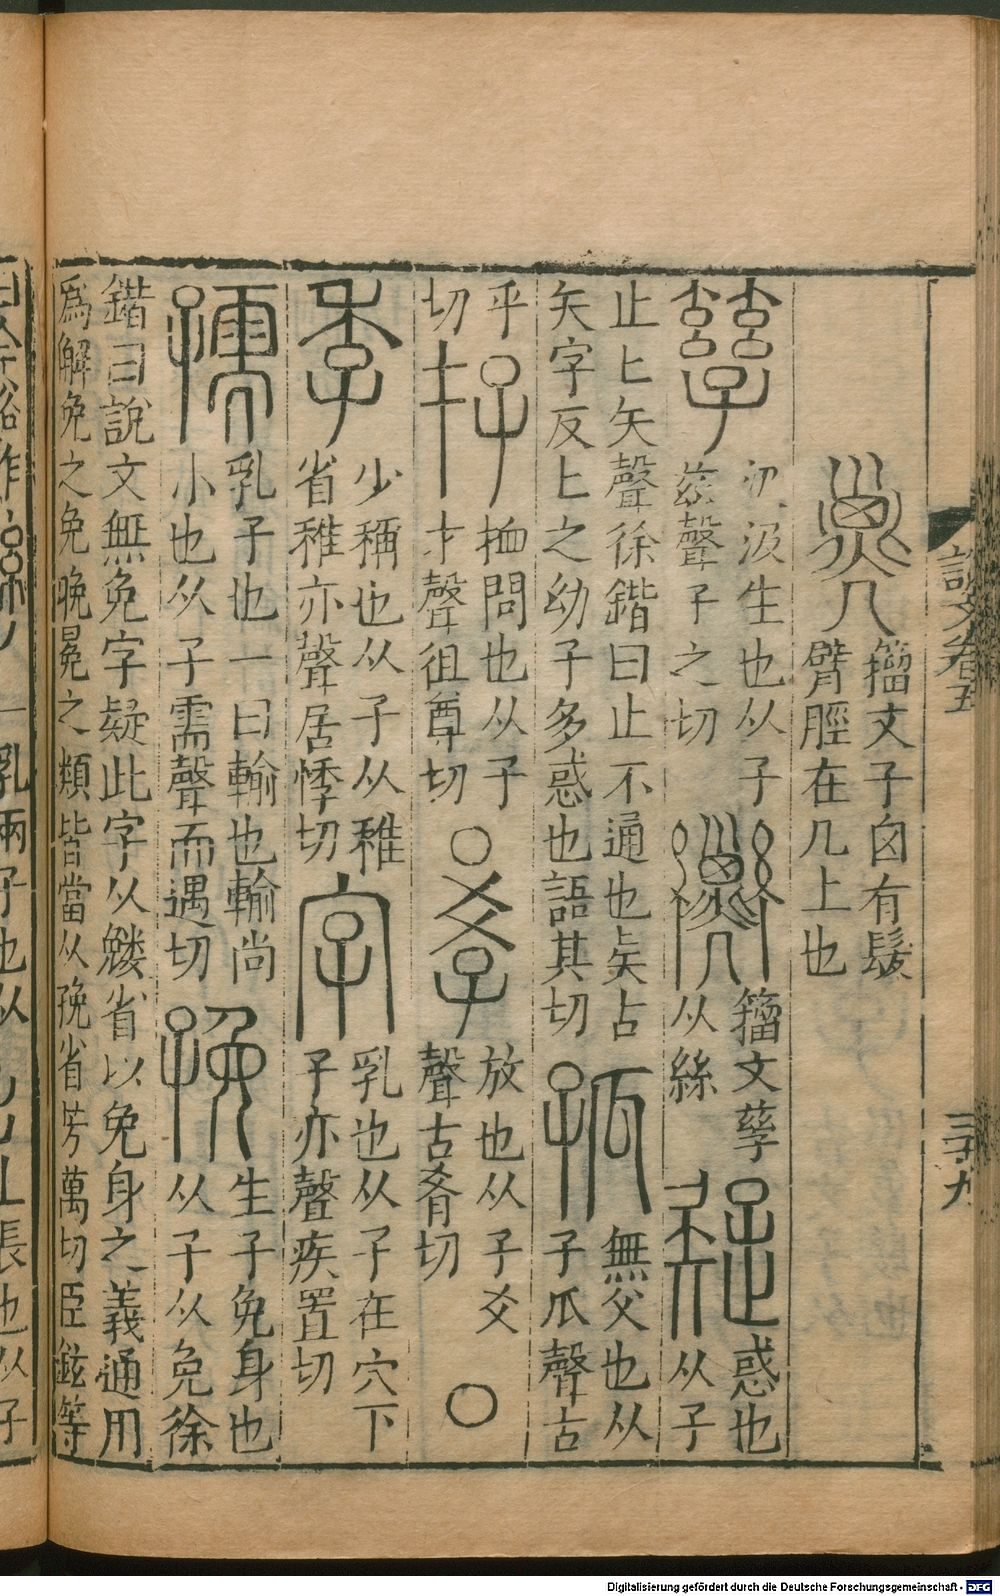 說文卷五
籀文子囟有髮
臂脛在几上也
孳
汲汲生也从子
兹聲子之切
籀文孳
从絲
疑
惑也
从子
止匕矢聲徐鍇曰止不通也矣古
矢字反匕之幼子多惑也語其切
孤
無父也从
子瓜聲古
乎
切
存
恤問也从子
才聲徂尊切
○
㸚
放也从子爻
聲古肴切
○
季
少稱也从子从稚
省稚亦聲居悸切
字
乳也从子在穴下
子亦聲疾置切
孺
乳子也一曰輸也輸尚
小也从子需聲而遇切
㝃
生子免身也
从子从免徐
鍇曰說文無免字疑此字从省以免身之義通用
爲解免之免晚冕之類皆當从㝃省芳萬切臣鉉等
一乳兩子也从
長也从子